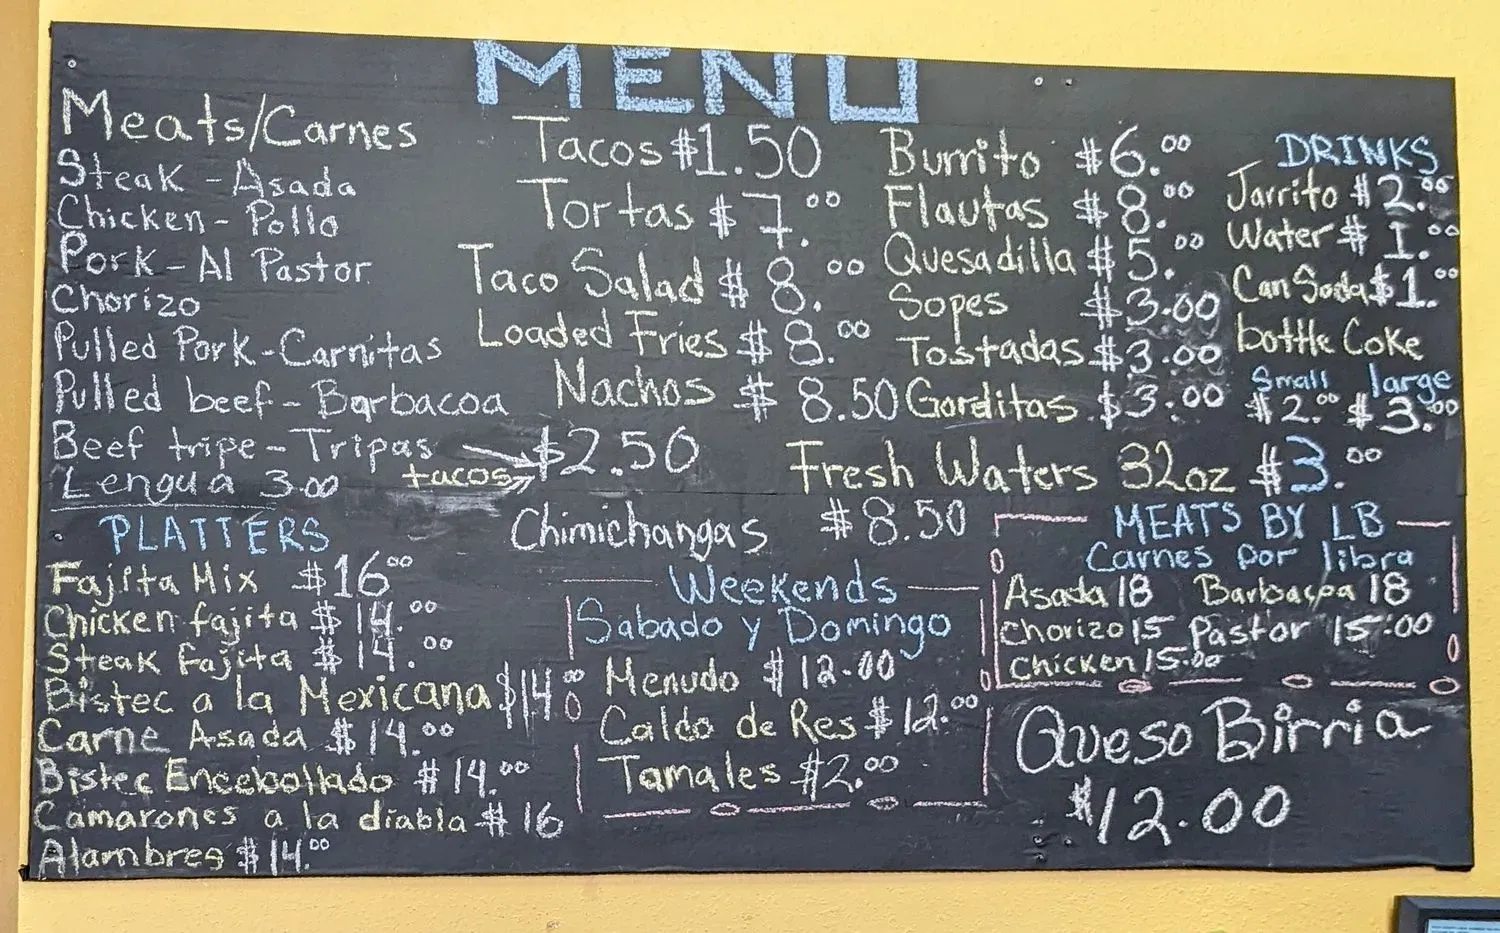 MENU
Meats/Carnes
Steak - Asada
Chicken - Pollo
Pork - Al Pastor
Chorizo
Pulled Pork - Carnitas
Pulled beef - Barbacoa
Beef tripe - Tripas
tacos $2.50
Lengua 3.00
Tacos $1.50
Tortas $7.00
Taco Salad $8.00
Loaded Fries $8.00
Nachos $8.50
Burrito $6.00
Flautas $8.00
Quesadilla $5.00
Sopes $3.00
Tostadas $3.00
Gorditas $3.00
DRINKS
Jarrito $2.00
Water $1.00
Can Soda $1.00
bottle Coke
Small large
$2.00 $3.00
Fresh Waters 32oz $3.00
Chimichangas $8.50
PLATTERS
Fajita Mix $16.00
Chicken fajita $14.00
Steak fajita $14.00
Bistec a la Mexicana $14.00
Carne Asada $14.00
Bistec Encebollado $14.00
Camarones a la diabla $16
Alambres $14.00
Weekends
Sabado y Domingo
Menudo $12.00
Caldo de Res $12.00
Tamales $2.00
MEATS BY LB
Carnes por libra
Asada 18 Barbacoa 18
Chorizo 15 Pastor 15.00
Chicken 15.00
Queso Birria
$12.00